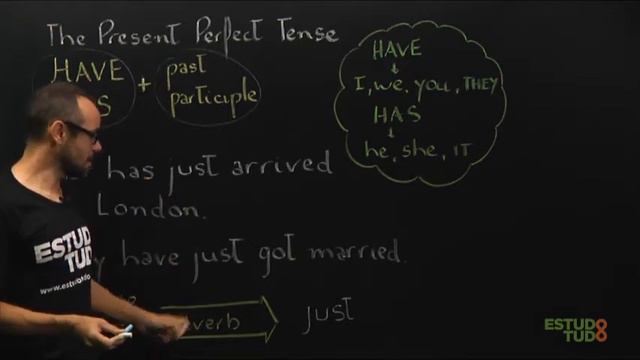 The Present Perfect Tense
HAVE + past participle
HAVE
I, we, you, THEY
HAS
he, she, IT
has just arrived
London.
have just got married.
just
ESTUDO
TUDO
www.estudo
ESTUDO
TUDO